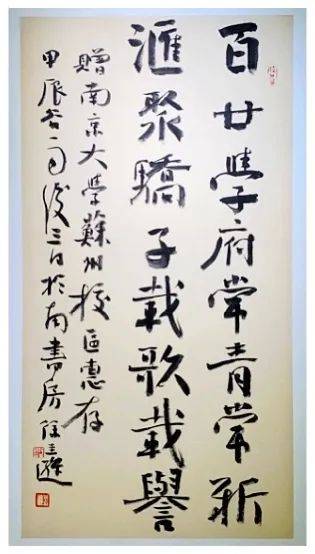 百廿學府常青常新
滙聚驕子載歌載譽
贈南京大學蘇州校區惠存
甲辰谷雨後三日於南書房